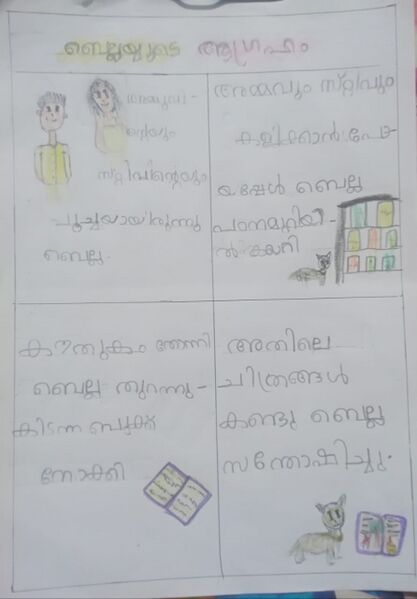 ബെല്ലയുടെ ആഗ്രഹം
അമ്മുവി-
ന്റെയും
സ്റ്റീവിന്റെയും
പൂച്ചയായിരുന്നു
ബെല്ല.
അമ്മുവും സ്റ്റീവും
കളിക്കാൻ പോ-
യപ്പോൾ ബെല്ല
പഠനമുറിയി-
ൽ കയറി
കൗതുകം തോന്നി
ബെല്ല തുറന്നു-
കിടന്ന ബുക്ക്
നോക്കി
അതിലെ
ചിത്രങ്ങൾ
കണ്ടു ബെല്ല
സന്തോഷിച്ചു.